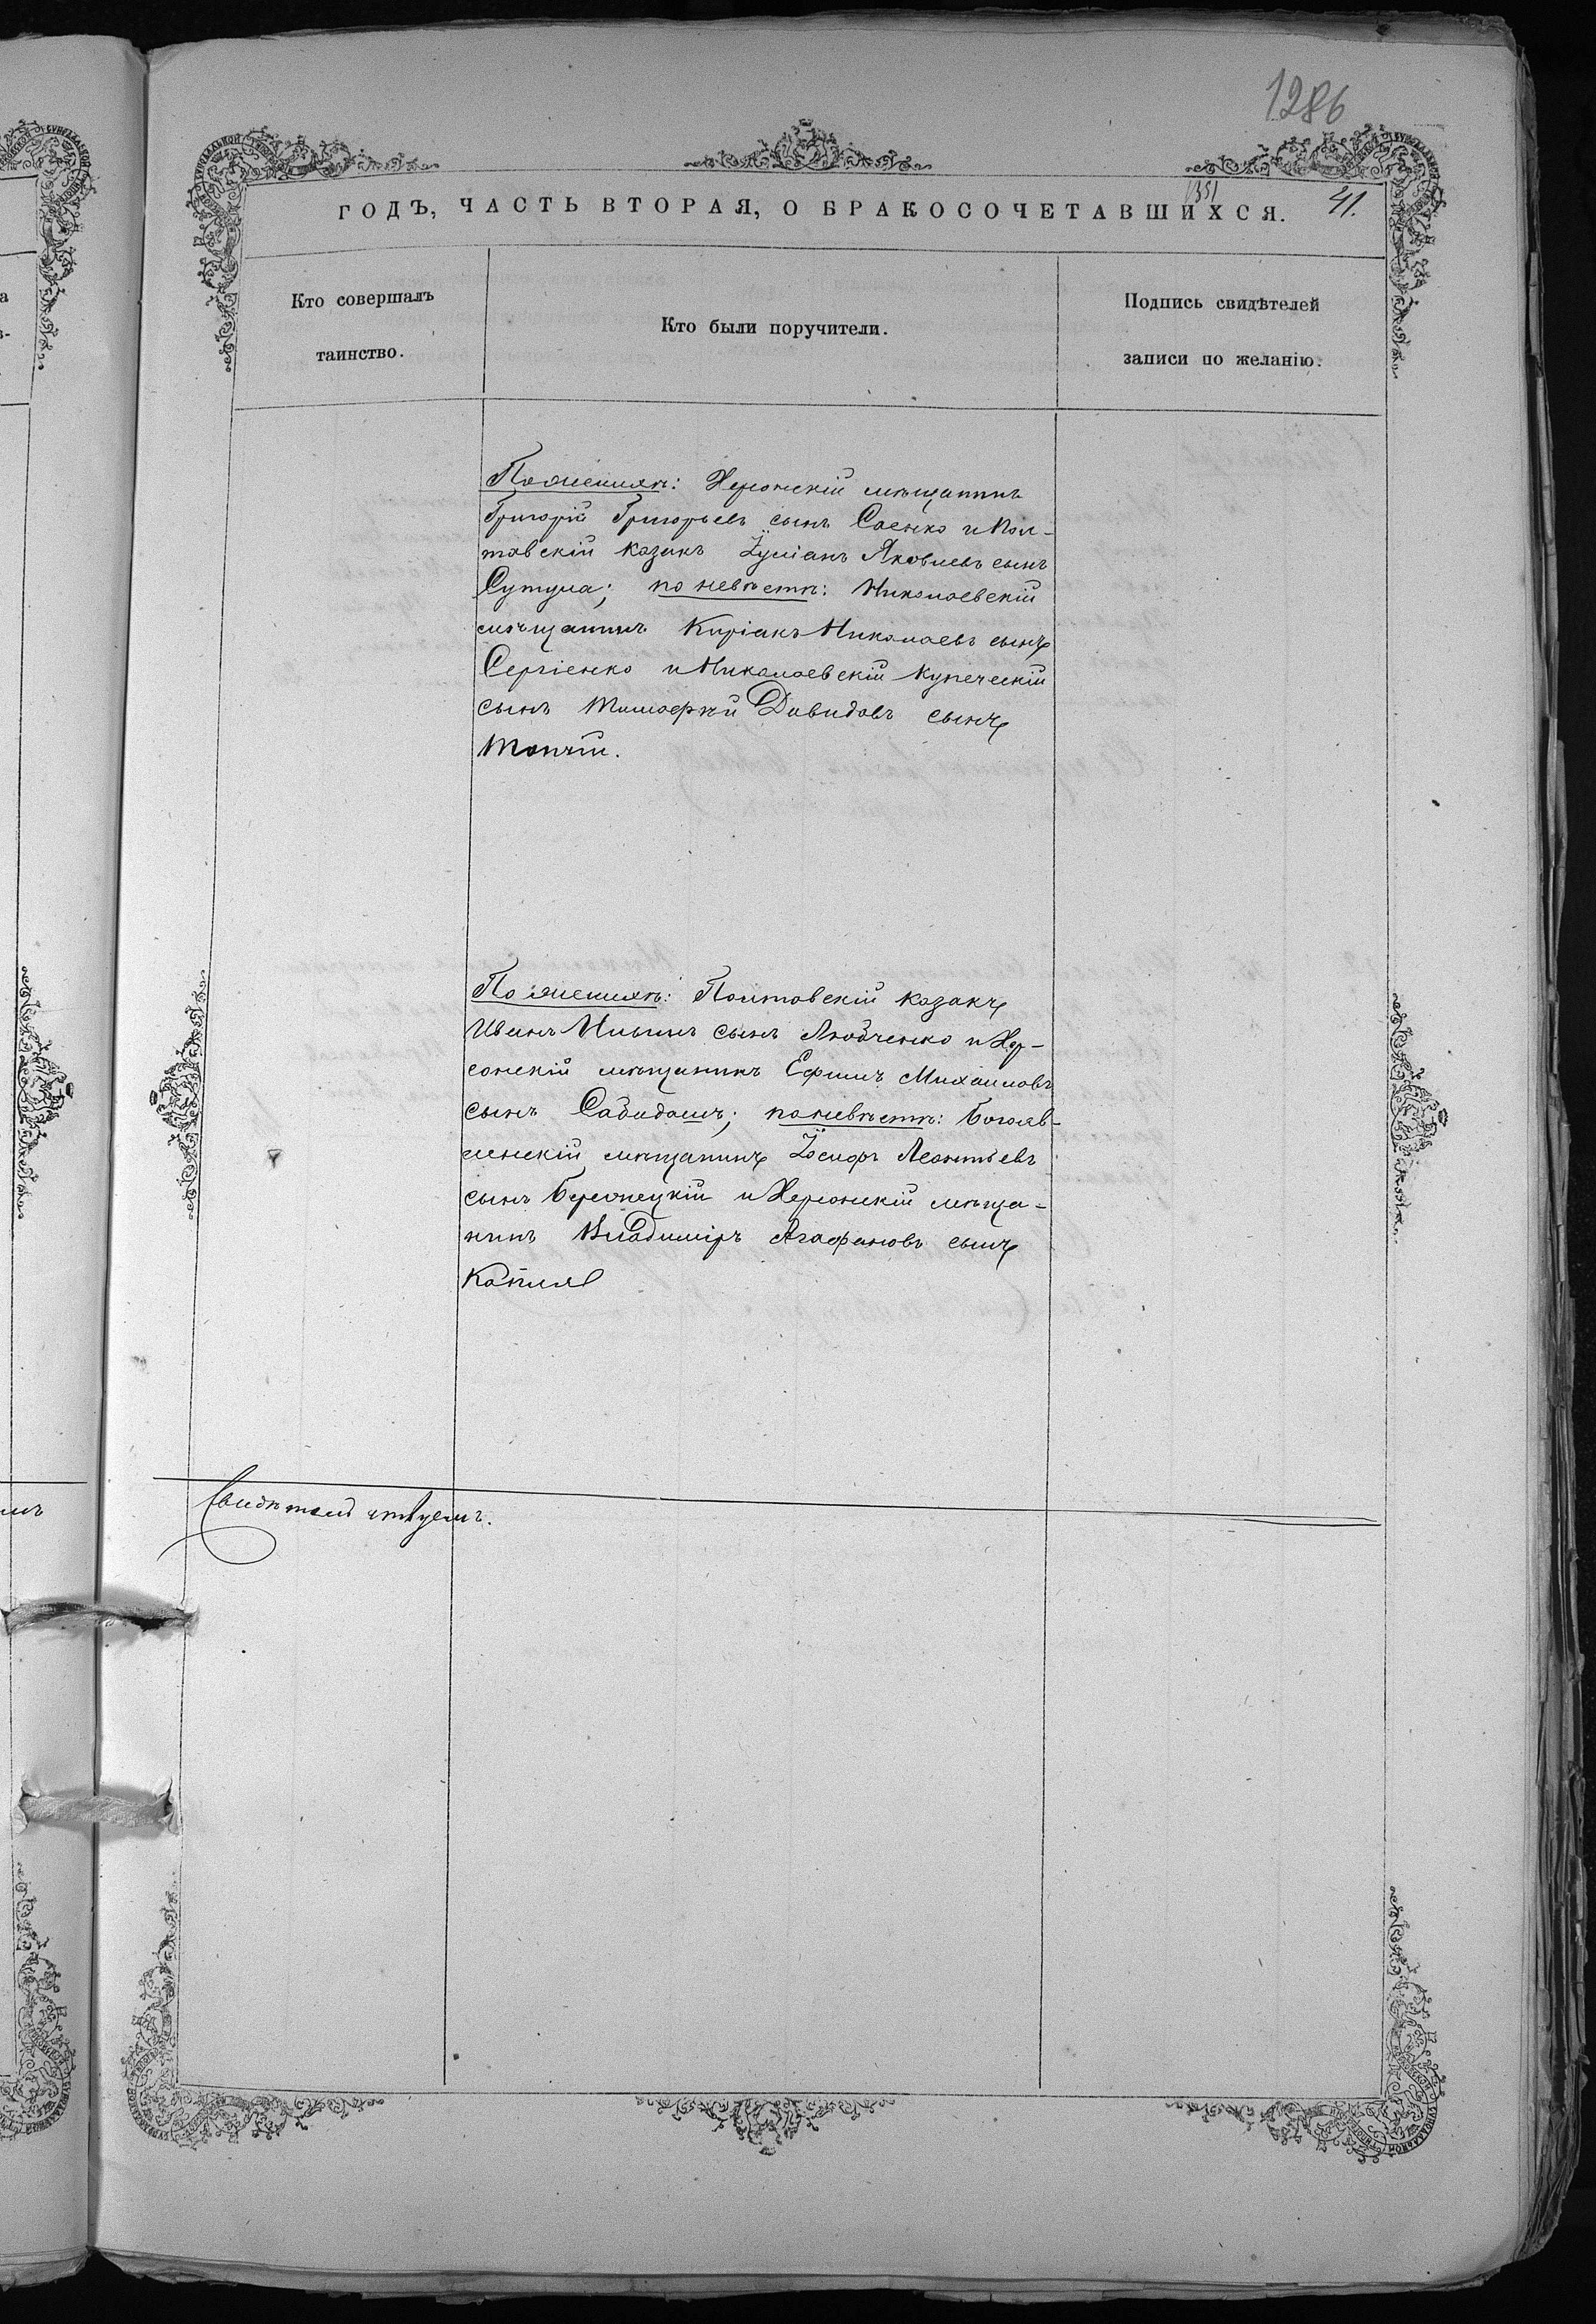 1286
351
41.
ГОДЪ, ЧАСТЬ ВТОРАЯ, О БРАКОСОЧЕТАВШИХСЯ.
Кто совершалъ
таинство.
Кто были поручители.
Подпись свидѣтелей
записи по желанію.
По женихѣ: Херсонскій мѣщанинъ
Григорій Григорьевъ сынъ Саенко и Пол-
тавскій казакъ Іуліанъ Яковлевъ сынъ
Сутула; по невѣстѣ: Николаевскій
мѣщанинъ Киріакъ Николаевъ сынъ
Сергіенко и Николаевскій купеческій
сынъ Тимофей Давидовъ сынъ
Топчій.
По женихѣ: Полтавскій казакъ
Иванъ Ильинъ сынъ Любченко и Хер-
сонскій мѣщанинъ Ефимъ Михаиловъ
сынъ Сабадашъ; по невѣстѣ: Богояв-
ленскій мѣщанинъ Іосифъ Леонтьевъ
сынъ и Херсонскій мѣща-
нинъ Владиміръ Агафоновъ сынъ
Капля
Свидѣтельствуемъ.